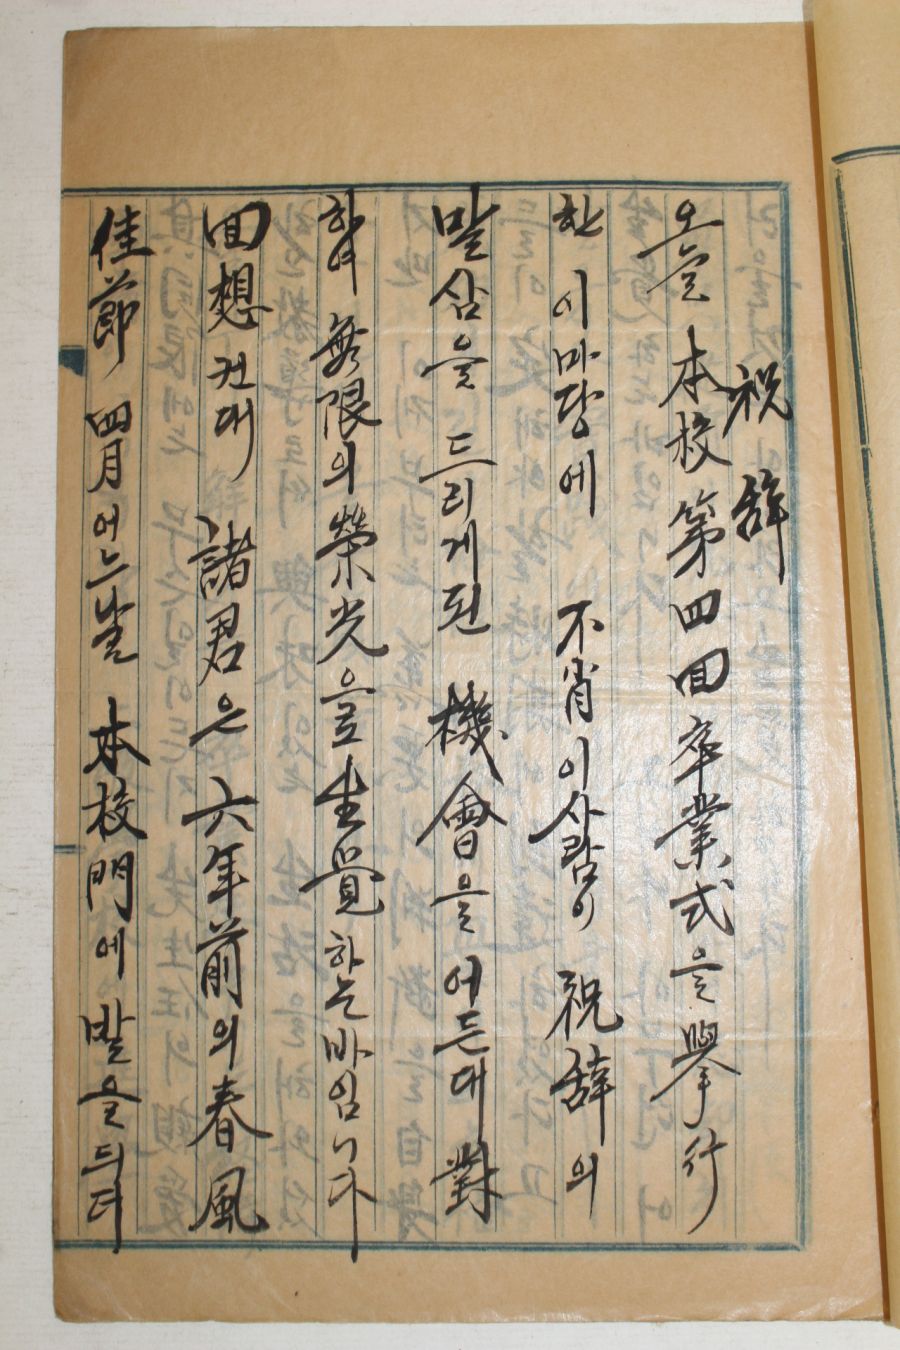 祝辞
오늘 本校 第四回 卒業式을 擧行
한 이마당에 不肖 이사람이 祝辞의
말삼을 드리게된 機會을 어든대 對
하야 無限의 榮光을 生覺하는바임니다
回想컨대 諸君은 六年前의 春風
佳節 四月 어느날 本校門에 발을 듸려